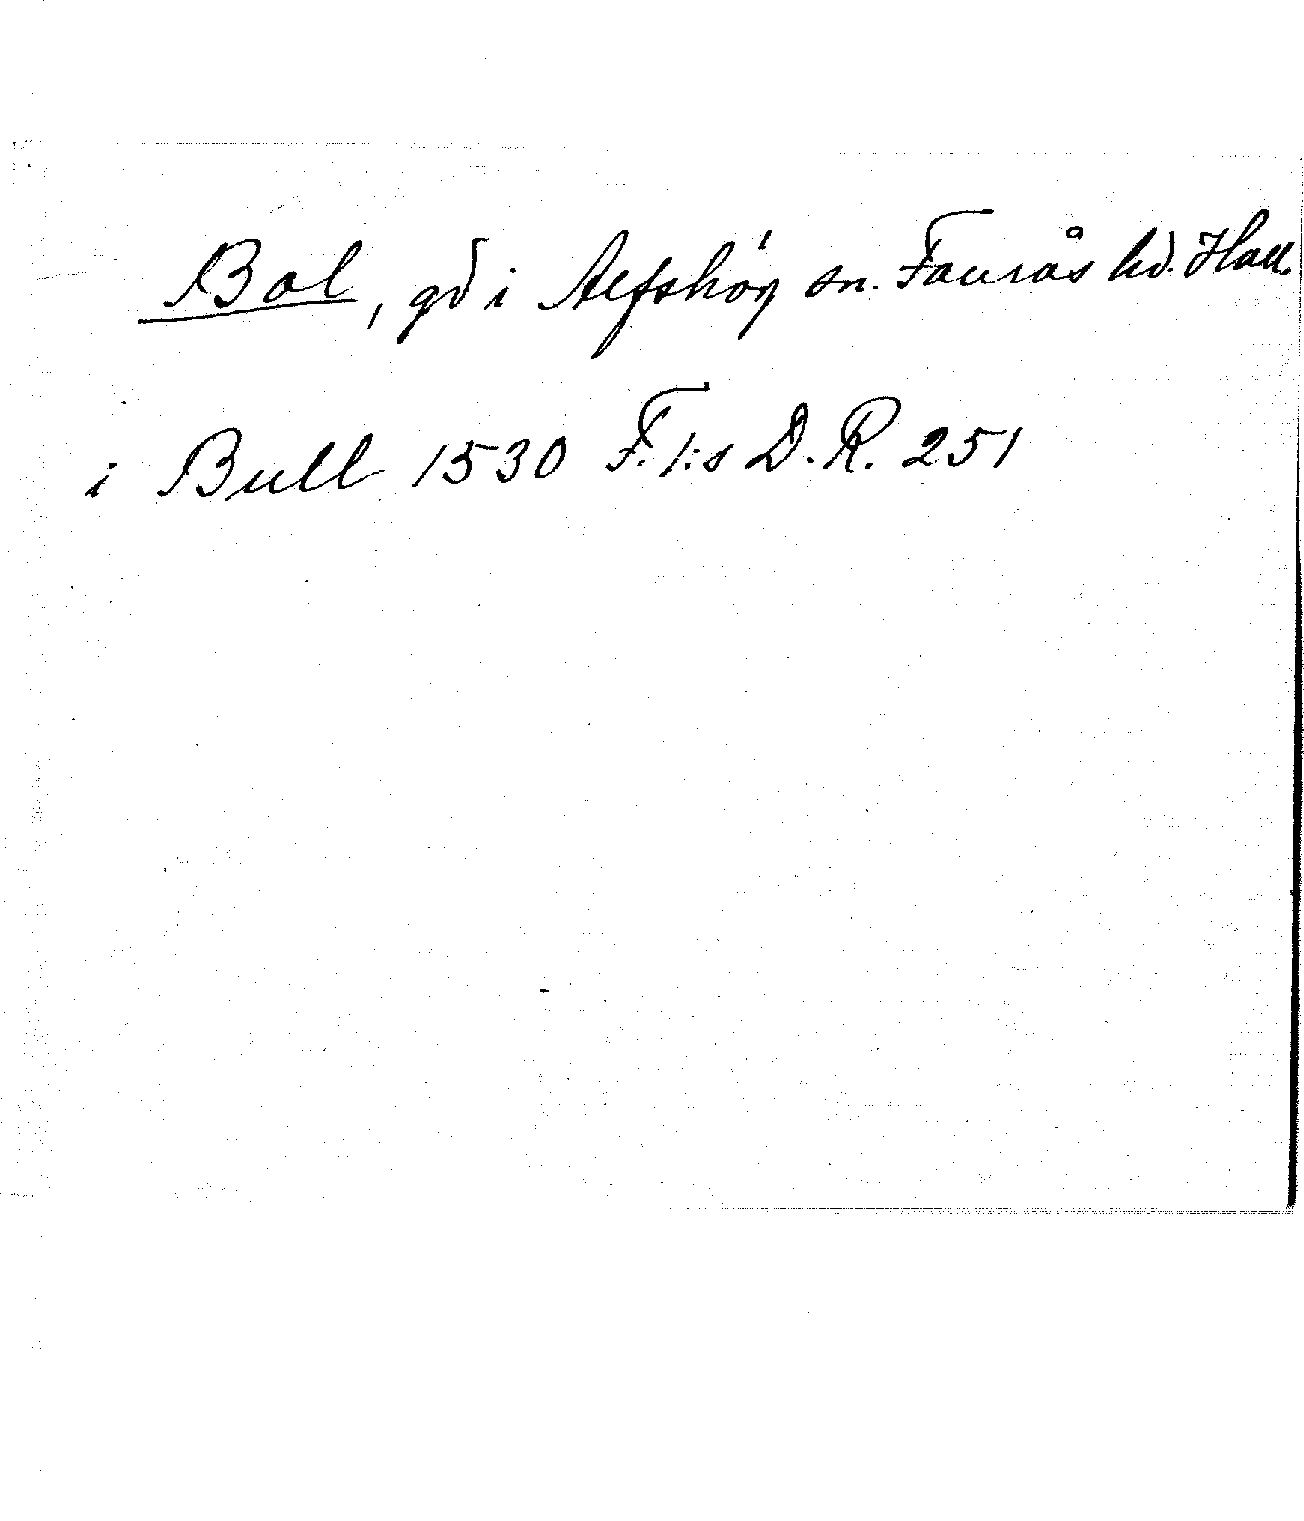 Bol, gd i Alfshög sn. Faurås hd. Hall.
i Bull 1530 F. I:s D. R. 251